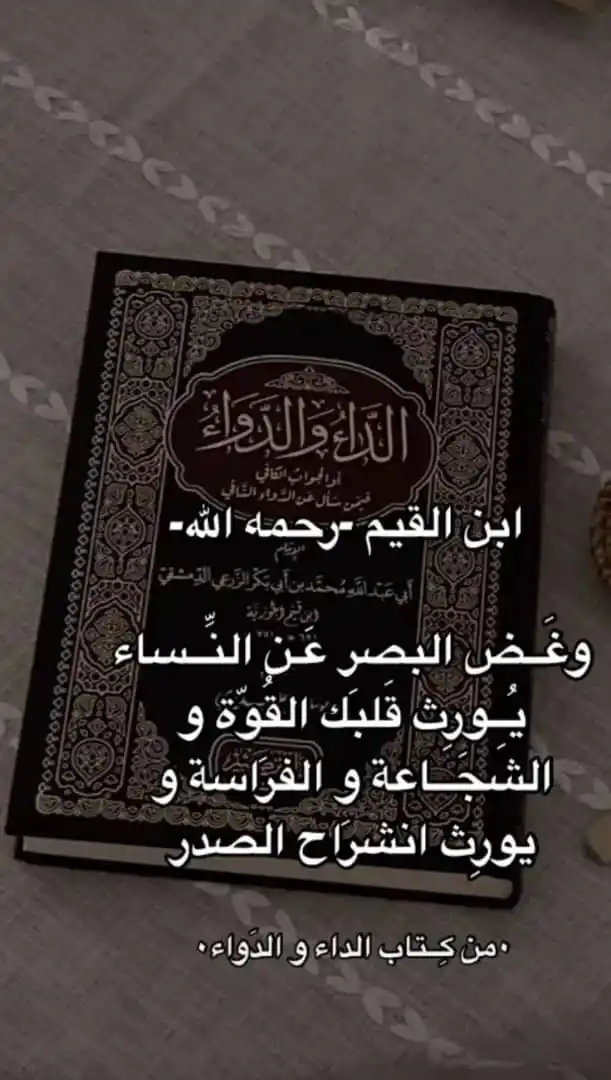 الدَّاءُ وَالدَّوَاءُ
أو الجواب الكافي
لمن سأل عن الدواء الشافي
ابن القيم -رحمه الله-
الإمام
أبي عبد الله محمد بن أبي بكر الزرعي الدمشقي
ابن قيم الجوزية
وغَـض البصر عَن النِّـساء
يُـورِث قَلبَك القُوّة و
الشَجَـاعة و الفرَاسَة و
يورِث انشرَاح الصدر
•من كِـتاب الداء و الدَواء•